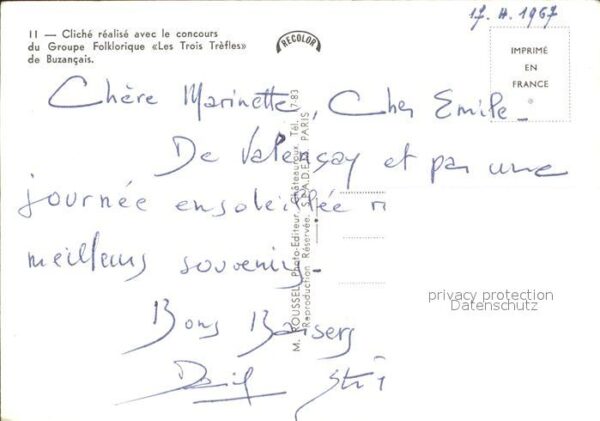 17. 4. 1967
11 — Cliché réalisé avec le concours
du Groupe Folklorique «Les Trois Trèfles»
de Buzançais.
RECOLOR
IMPRIMÉ
EN
FRANCE
Chère Marinette, Cher Emile_
De Valençay et par une
journée ensoleillée
meilleurs souvenirs.
Bons Baisers
M. ROUSSEL, Photo-Editeur, Châteauroux, Tél. 7-83
Reproduction Réservée. S.P.A.D.E.M. PARIS
privacy protection
Datenschutz